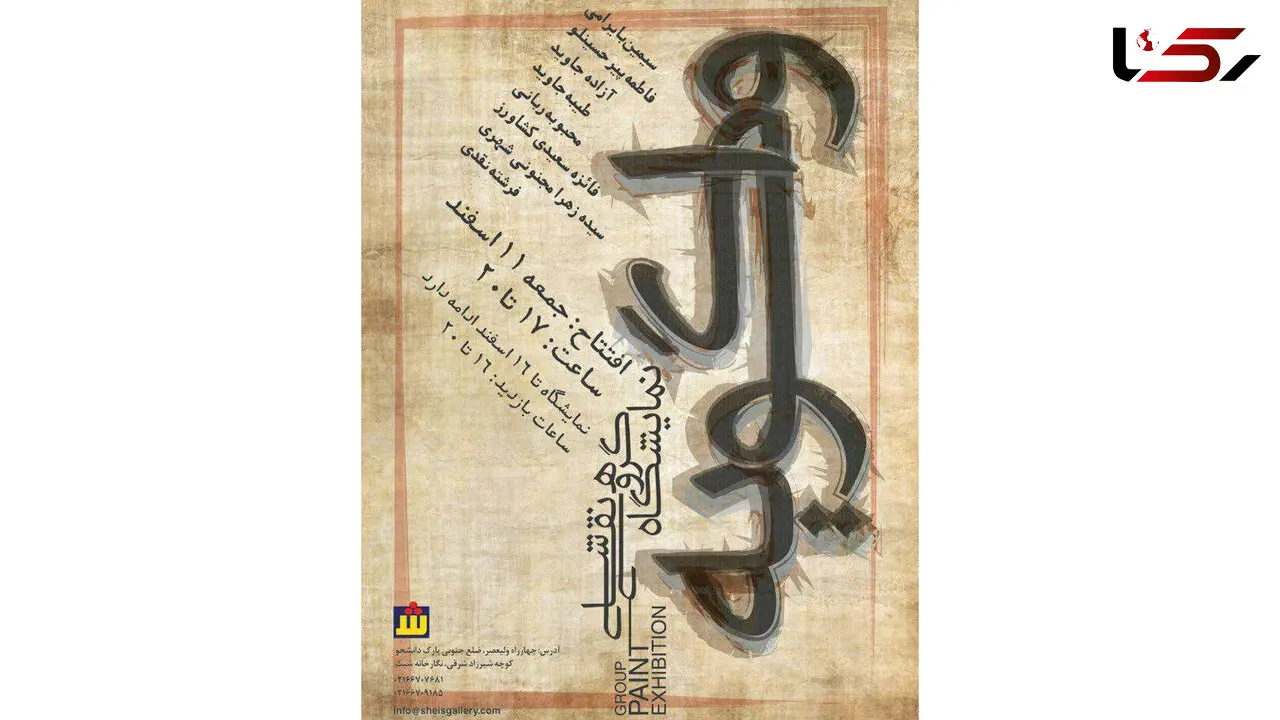 رکنا
واگویه
سیمین بایرامی
فاطمه پیرحسینلو
آزاده جاوید
طیبه جاوید
محبوبه ربانی
فائزه سعیدی کشاورز
سیده زهرا مجنونی شهری
فرشته نقدی
افتتاح: جمعه ۱۱ اسفند
ساعت: ۱۷ تا ۲۰
نمایشگاه تا ۱۶ اسفند ادامه دارد
ساعات بازدید: ۱۶ تا ۲۰
نمایشگاه
گروهی
نقاشی
GROUP
PAINT
EXHIBITION
آدرس: چهارراه ولیعصر، ضلع جنوبی پارک دانشجو
کوچه شیرزاد شرقی، نگارخانه شیث
۰۲۱۶۶۷۰۷۶۸۱
۰۲۱۶۶۷۰۹۱۸۵
info@sheisgallery.com